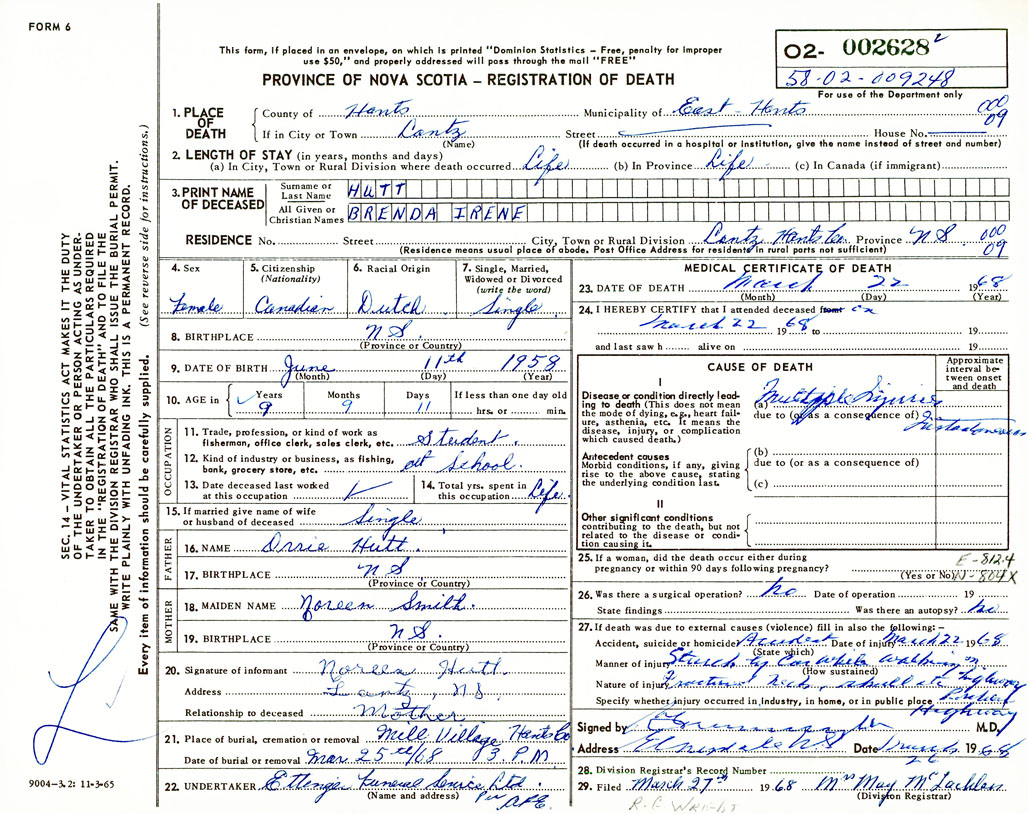 FORM 6
This form, if placed in an envelope, on which is printed "Dominion Statistics – Free, penalty for improper
use $50," and properly addressed will pass through the mail "FREE"
PROVINCE OF NOVA SCOTIA – REGISTRATION OF DEATH
02- 002628
58-02-009248
For use of the Department only
SEC. 14 – VITAL STATISTICS ACT MAKES IT THE DUTY
OF THE UNDERTAKER OR PERSON ACTING AS UNDER-
TAKER TO OBTAIN ALL THE PARTICULARS REQUIRED
IN THE "REGISTRATION OF DEATH" AND TO FILE THE
SAME WITH THE DIVISION REGISTRAR WHO SHALL ISSUE THE BURIAL PERMIT.
WRITE PLAINLY WITH UNFADING INK. THIS IS A PERMANENT RECORD.
Every item of information should be carefully supplied. (See reverse side for instructions.)
1. PLACE OF DEATH County of Hants Municipality of East Hants 000 09
If in City or Town Lantz Street House No.
(Name) (If death occurred in a hospital or institution, give the name instead of street and number)
2. LENGTH OF STAY (in years, months and days)
(a) In City, Town or Rural Division where death occurred Life (b) In Province Life (c) In Canada (if immigrant)
3. PRINT NAME OF DECEASED Surname or Last Name HUTT
All Given or Christian Names BRENDA IRENE
RESIDENCE No. Street City, Town or Rural Division Lantz Hants Co Province NS 000 09
(Residence means usual place of abode. Post Office Address for residents in rural parts not sufficient)
4. Sex Female
5. Citizenship (Nationality) Canadian
6. Racial Origin Dutch
7. Single, Married, Widowed or Divorced (write the word) Single
8. BIRTHPLACE N S.
(Province or Country)
9. DATE OF BIRTH June 11th 1958
(Month) (Day) (Year)
10. AGE in Years 9 Months 9 Days 11 If less than one day old hrs. or min.
OCCUPATION
11. Trade, profession, or kind of work as fisherman, office clerk, sales clerk, etc. Student
12. Kind of industry or business, as fishing, bank, grocery store, etc. at School.
13. Date deceased last worked at this occupation
14. Total yrs. spent in this occupation Life
15. If married give name of wife or husband of deceased Single
FATHER
16. NAME Orrie Hutt.
17. BIRTHPLACE N S
(Province or Country)
MOTHER
18. MAIDEN NAME Noreen Smith.
19. BIRTHPLACE N S.
(Province or Country)
20. Signature of informant Noreen Hutt
Address Lantz, N.S.
Relationship to deceased Mother
21. Place of burial, cremation or removal Mill Village Hants Co
Date of burial or removal Mar. 25th/68 3. P.M
22. UNDERTAKER Ettinger Funeral Service Ltd.
(Name and address) Per
MEDICAL CERTIFICATE OF DEATH
23. DATE OF DEATH March 22 1968
(Month) (Day) (Year)
24. I HEREBY CERTIFY that I attended deceased from on
March 22 1968 to 19
and last saw h alive on 19
CAUSE OF DEATH
Approximate interval between onset and death
I
Disease or condition directly lead-
ing to death (This does not mean
the mode of dying, e.g., heart fail-
ure, asthenia, etc. It means the
disease, injury, or complication
which caused death.)
(a) Multiple Injuries
due to (or as a consequence of)
Antecedent causes
Morbid conditions, if any, giving
rise to the above cause, stating
the underlying condition last.
(b)
due to (or as a consequence of)
(c)
II
Other significant conditions
contributing to the death, but not
related to the disease or condi-
tion causing it.
25. If a woman, did the death occur either during
pregnancy or within 90 days following pregnancy? E-812.4
(Yes or No) N-804X
26. Was there a surgical operation? No Date of operation 19
State findings Was there an autopsy? No
27. If death was due to external causes (violence) fill in also the following: –
Accident, suicide or homicide Accident Date of injury March 22 1968
(State which)
Manner of injury Struck by Car while walking on
(How sustained) highway
Nature of injury Fractured neck, skull etc
Specify whether injury occurred in industry, in home, or in public place Public
Highway
Signed by M.D.
Address Date 1968
28. Division Registrar's Record Number
29. Filed March 27th 1968 Mrs May McLachlan
(Division Registrar)
R.E WRIGHT
9004-3.2: 11-3-65